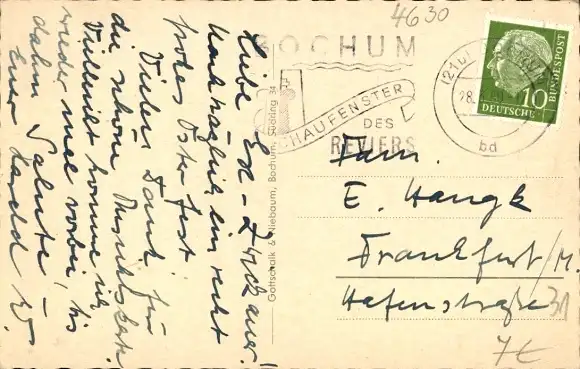 4630
Liebe Ex-Zwickauer!
Nachträglich ein recht
frohes Osterfest
Vielen Dank für
die schöne Ansichtskarte.
Vielleicht komme ich
wieder mal vorbei, bis
dahin Salute –
Euer
BOCHUM
SCHAUFENSTER
DES
REVIERS
(21b)
28.
bd
10
DEUTSCHE BUNDESPOST
Gottschalk & Niebaum, Bochum, Südring 34
Fam.
E. Hangk
Frankfurt/M.
Hafenstraße 31
7€